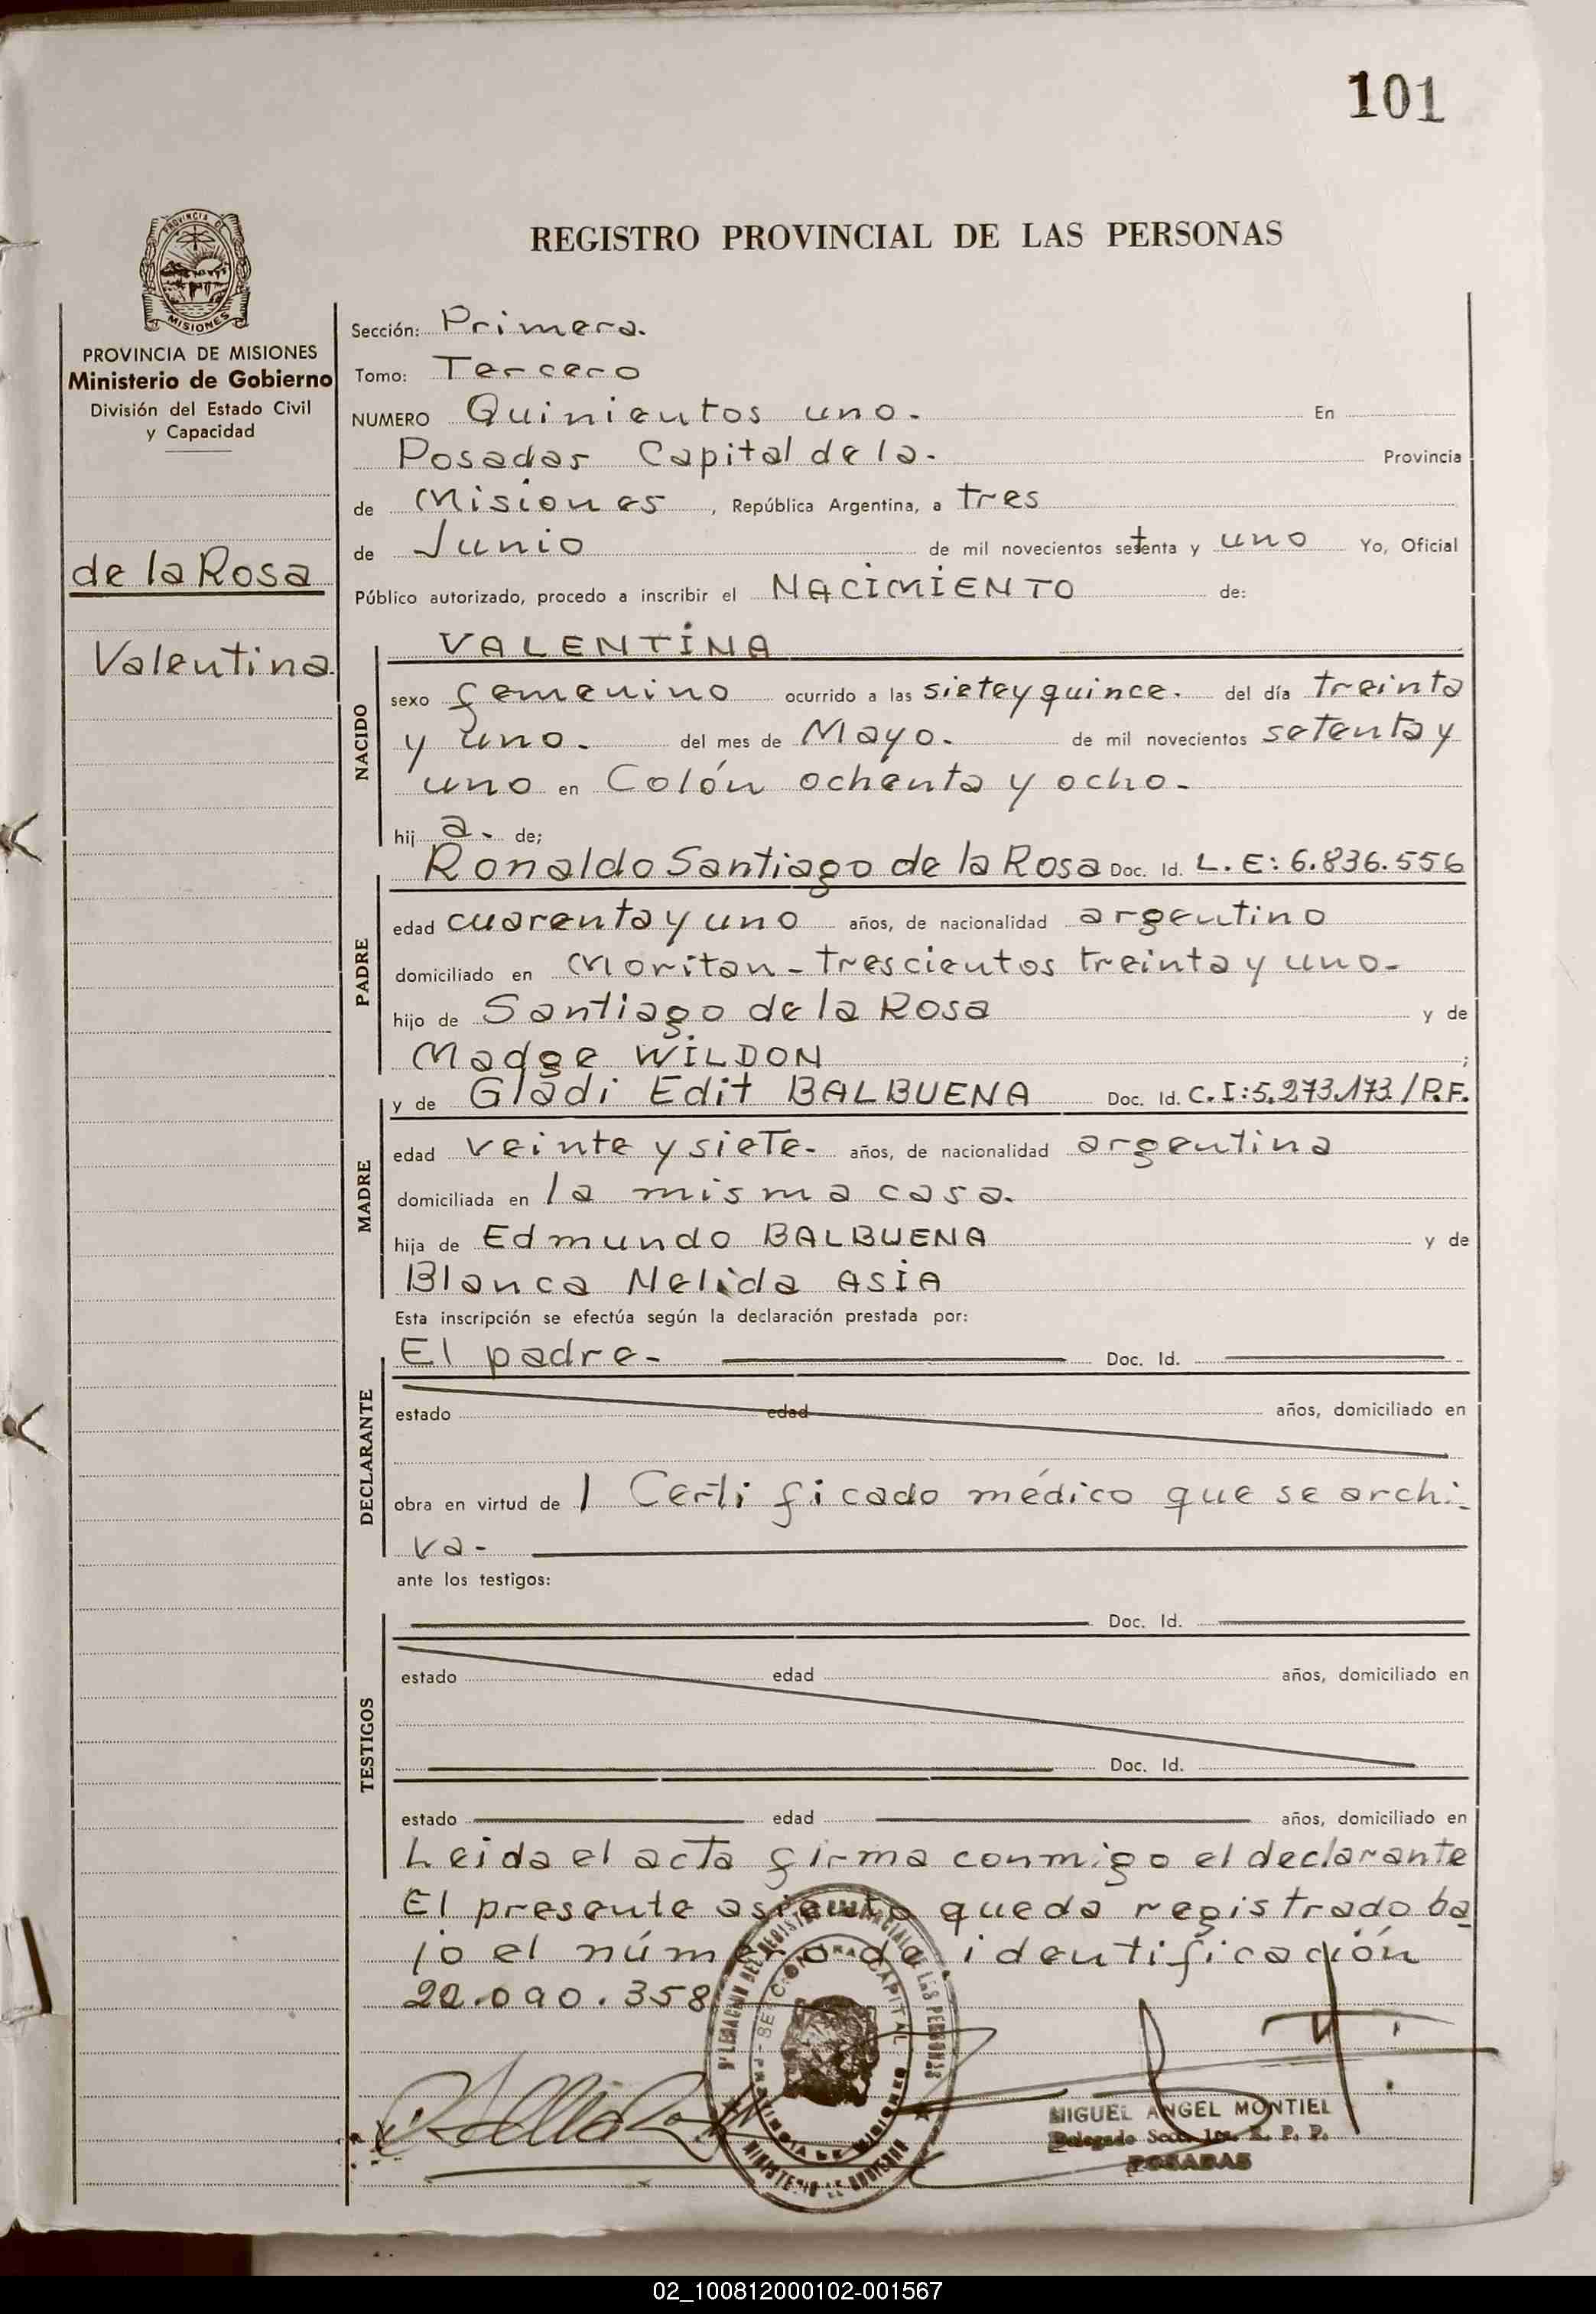 101
PROVINCIA DE
MISIONES
REGISTRO PROVINCIAL DE LAS PERSONAS
PROVINCIA DE MISIONES
Ministerio de Gobierno
División del Estado Civil
y Capacidad
de la Rosa
Valentina
Sección: Primera.
Tomo: Tercero
NUMERO Quinientos uno. En
Posadas Capital de la. Provincia
de Misiones, República Argentina, a tres
de Junio de mil novecientos setenta y uno Yo, Oficial
Público autorizado, procedo a inscribir el NACIMIENTO de:
NACIDO
VALENTINA
sexo femenino ocurrido a las siete y quince. del día treinta
y uno. del mes de Mayo. de mil novecientos setenta y
uno en Colón ochenta y ocho.
hij a. de;
PADRE
Ronaldo Santiago de la Rosa Doc. Id. L. E: 6.836.556
edad cuarenta y uno años, de nacionalidad argentino
domiciliado en Moritan - trescientos treinta y uno-
hijo de Santiago de la Rosa y de
Madge WILDON ;
MADRE
y de Gladi Edit BALBUENA Doc. Id. C. I:5.273.173/P.F.
edad veinte y siete- años, de nacionalidad argentina
domiciliada en la misma casa.
hija de Edmundo BALBUENA y de
Blanca Nelida ASIA
Esta inscripción se efectúa según la declaración prestada por:
DECLARANTE
El padre- Doc. Id.
estado edad años, domiciliado en
obra en virtud de 1 Certificado médico que se archi-
va-
ante los testigos:
TESTIGOS
Doc. Id.
estado edad años, domiciliado en
Doc. Id.
estado edad años, domiciliado en
Leida el acta firma conmigo el declarante
El presente asiento queda registrado ba
jo el número de identificación
22.090.358
MIGUEL ANGEL MONTIEL
Delegado Secc. 1ra. R. P. P.
POSADAS
PROVINCIA DE MISIONES
MINISTERIO DE GOBIERNO
02_100812000102-001567